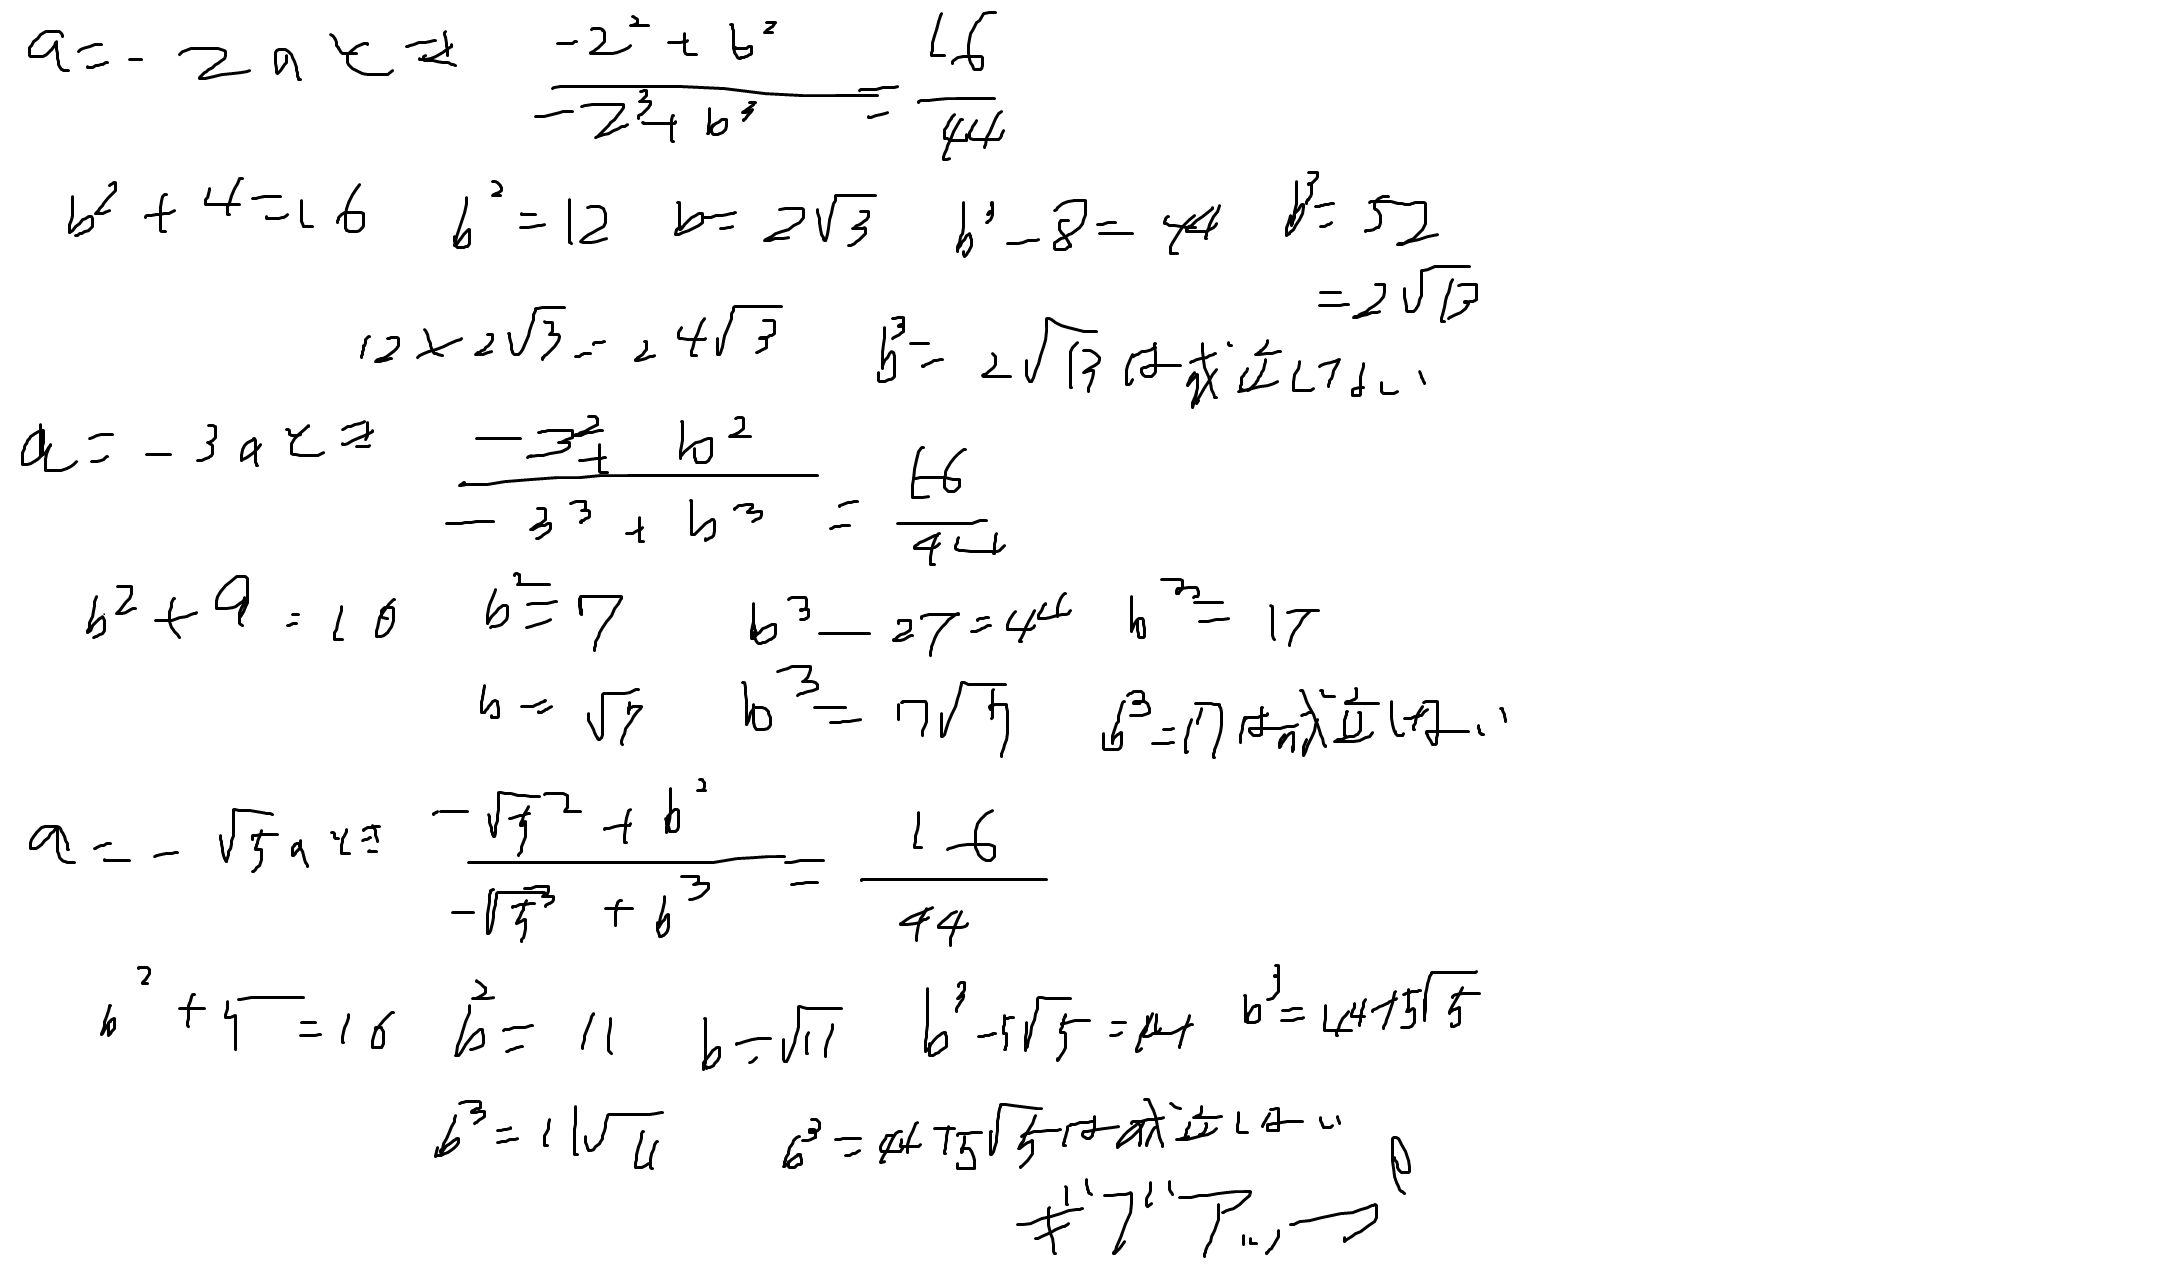 a = -2 のとき (-2² + b²)/(-2³ + b³) = 16/44
b² + 4 = 16 b² = 12 b = 2√3 b³ - 8 = 44 b³ = 52
= 2√13
12 × 2√3 = 24√3 b³ = 2√13 は成立しない
a = -3 のとき (-3² + b²)/(-3³ + b³) = 16/44
b² + 9 = 16 b² = 7 b³ - 27 = 44 b³ = 17
b = √7 b³ = 7√7 b³ = 17 は成立しない
a = -√5 のとき (-√5² + b²)/(-√5³ + b³) = 16/44
b² + 5 = 16 b² = 11 b = √11 b³ - 5√5 = 44 b³ = 44+5√5
b³ = 11√11 b³ = 44+5√5 は成立しない